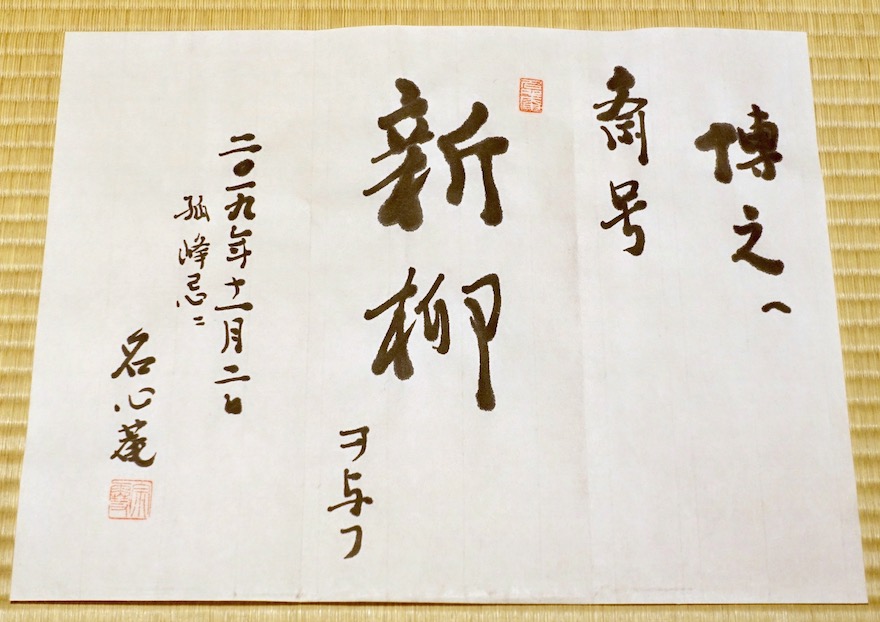 博之へ
斎号
新柳
ヲ与フ
二〇一九年十一月二日
孤峰忌ニ
名心菴